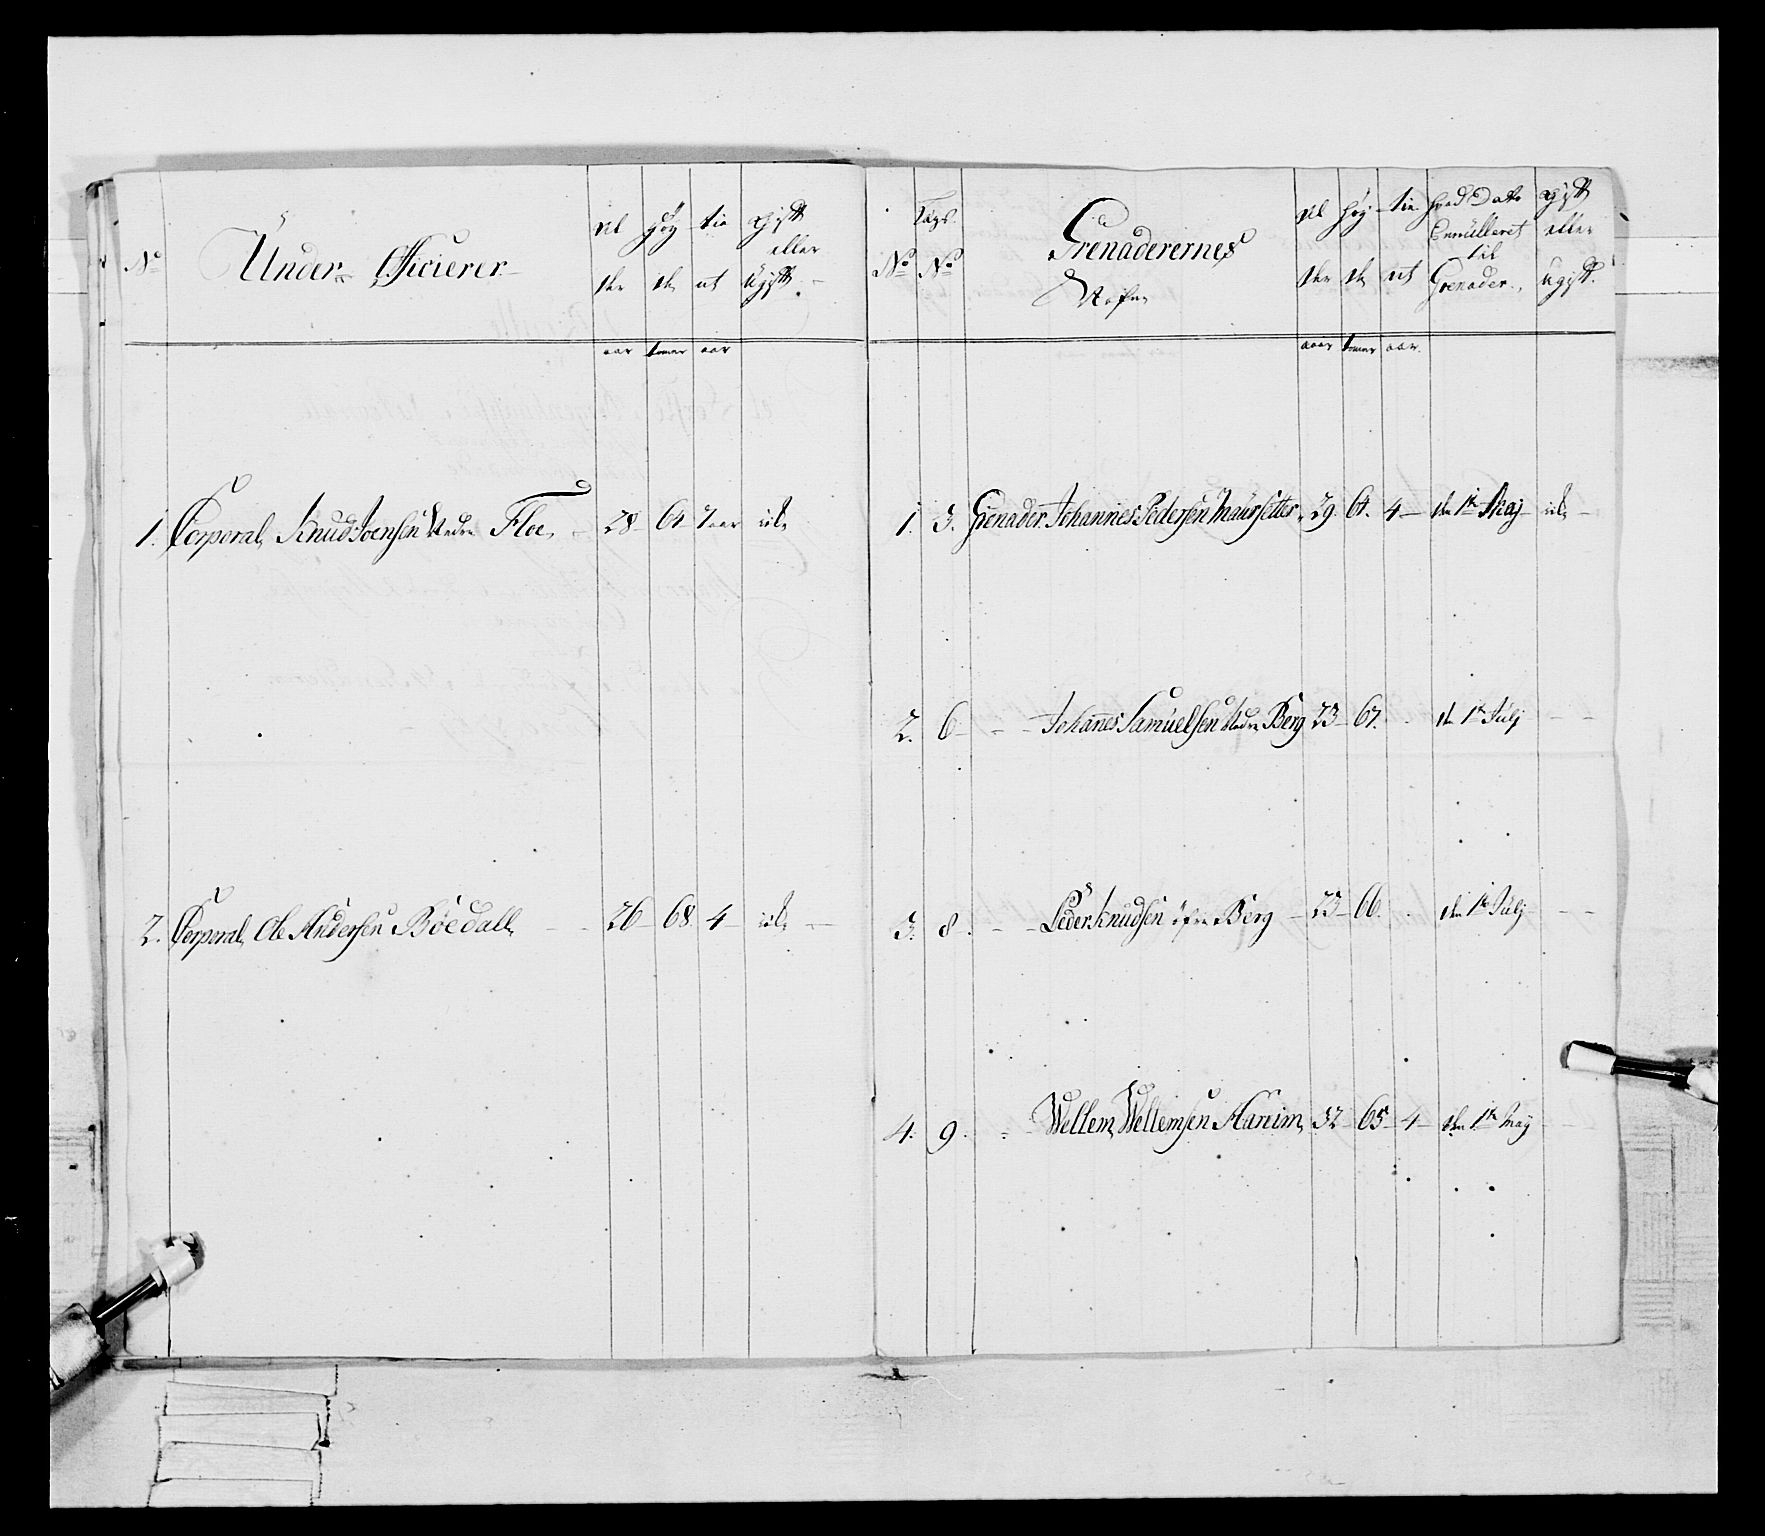 No
Under Officierer
al
der
høy
de
tie
nt
gift
eller
Ugift
aar
tommer
aar
1. Corporal Knud Joensen Nedre Floe 28 64 7 aar
2. Corporal Ole Andersen Böedall 26 68 4
No
Lægs
No
Grenaderernes
Nafne
al
der
høy
de
tie
nt
hvad Dato
Enrulleret
til
Grenader
gift
eller
ugift
aar
tommer
aar
1. 3. Grenader Johannes Pedersen Maursetter 29 64. 4 den 1te Maj
2. 6 Johanes Samuelsen Nedre Berg 23 67. den 1te Julj
3. 8. Peder Knudsen öfre Berg 23 66. den 1te Julj
4. 9. Wellem Wellemsen Hareim 32 65 4 den 1te May